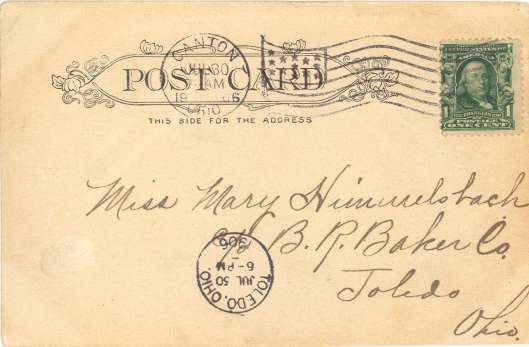 CANTON
JUL 30
7 AM
1906
OHIO
POST CARD
THIS SIDE FOR THE ADDRESS
ONE CENT
Miss Mary Himmelsbach
c/o B. R. Baker Co.
Toledo
Ohio.
TOLEDO, OHIO.
JUL 30
6-PM
1906